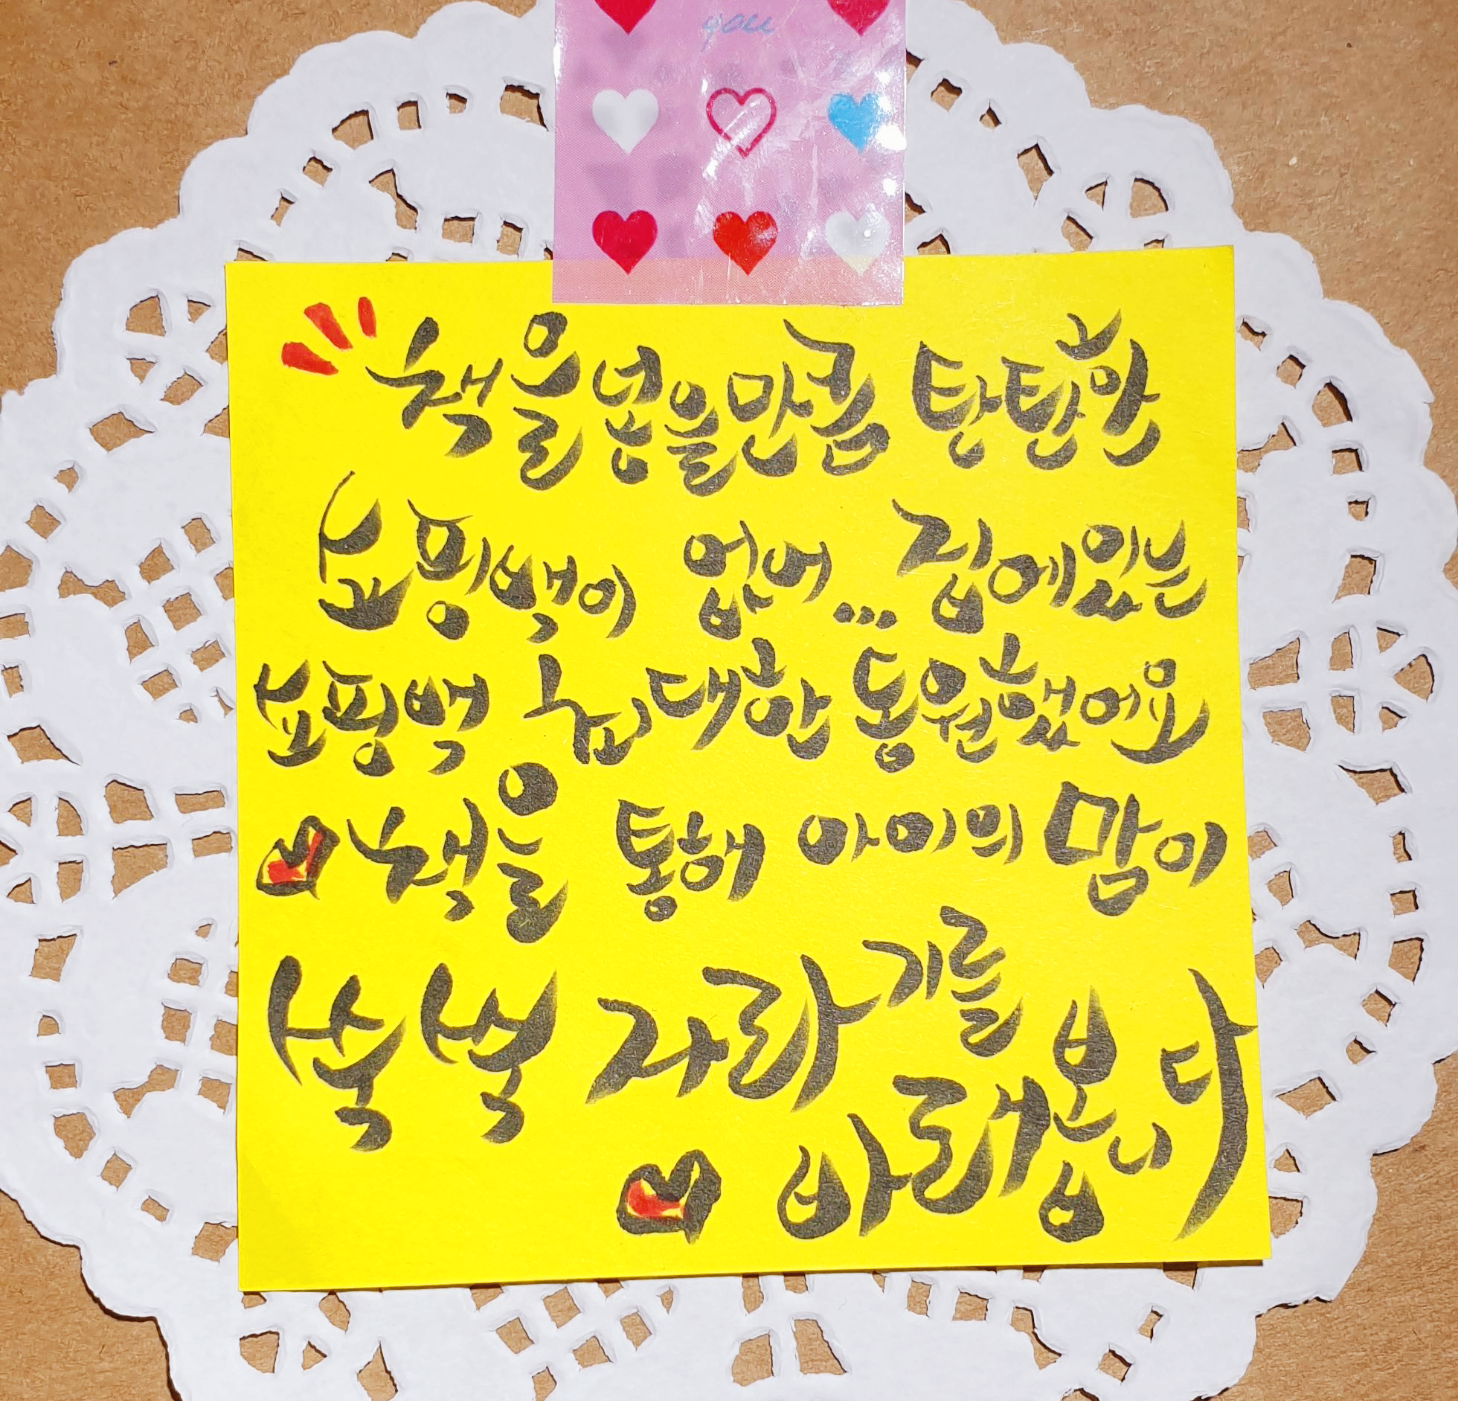 you
책을 넣을만큼 탄탄한
쇼핑백이 없어... 집에있는
쇼핑백 최대한 동원했어요
책을 통해 아이의 맘이
쑥쑥 자라기를
바래봅니다